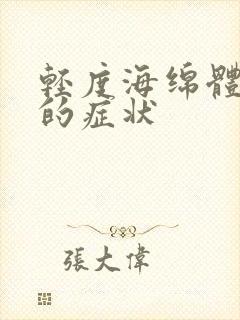 輕度海绵體
的症状
張大偉